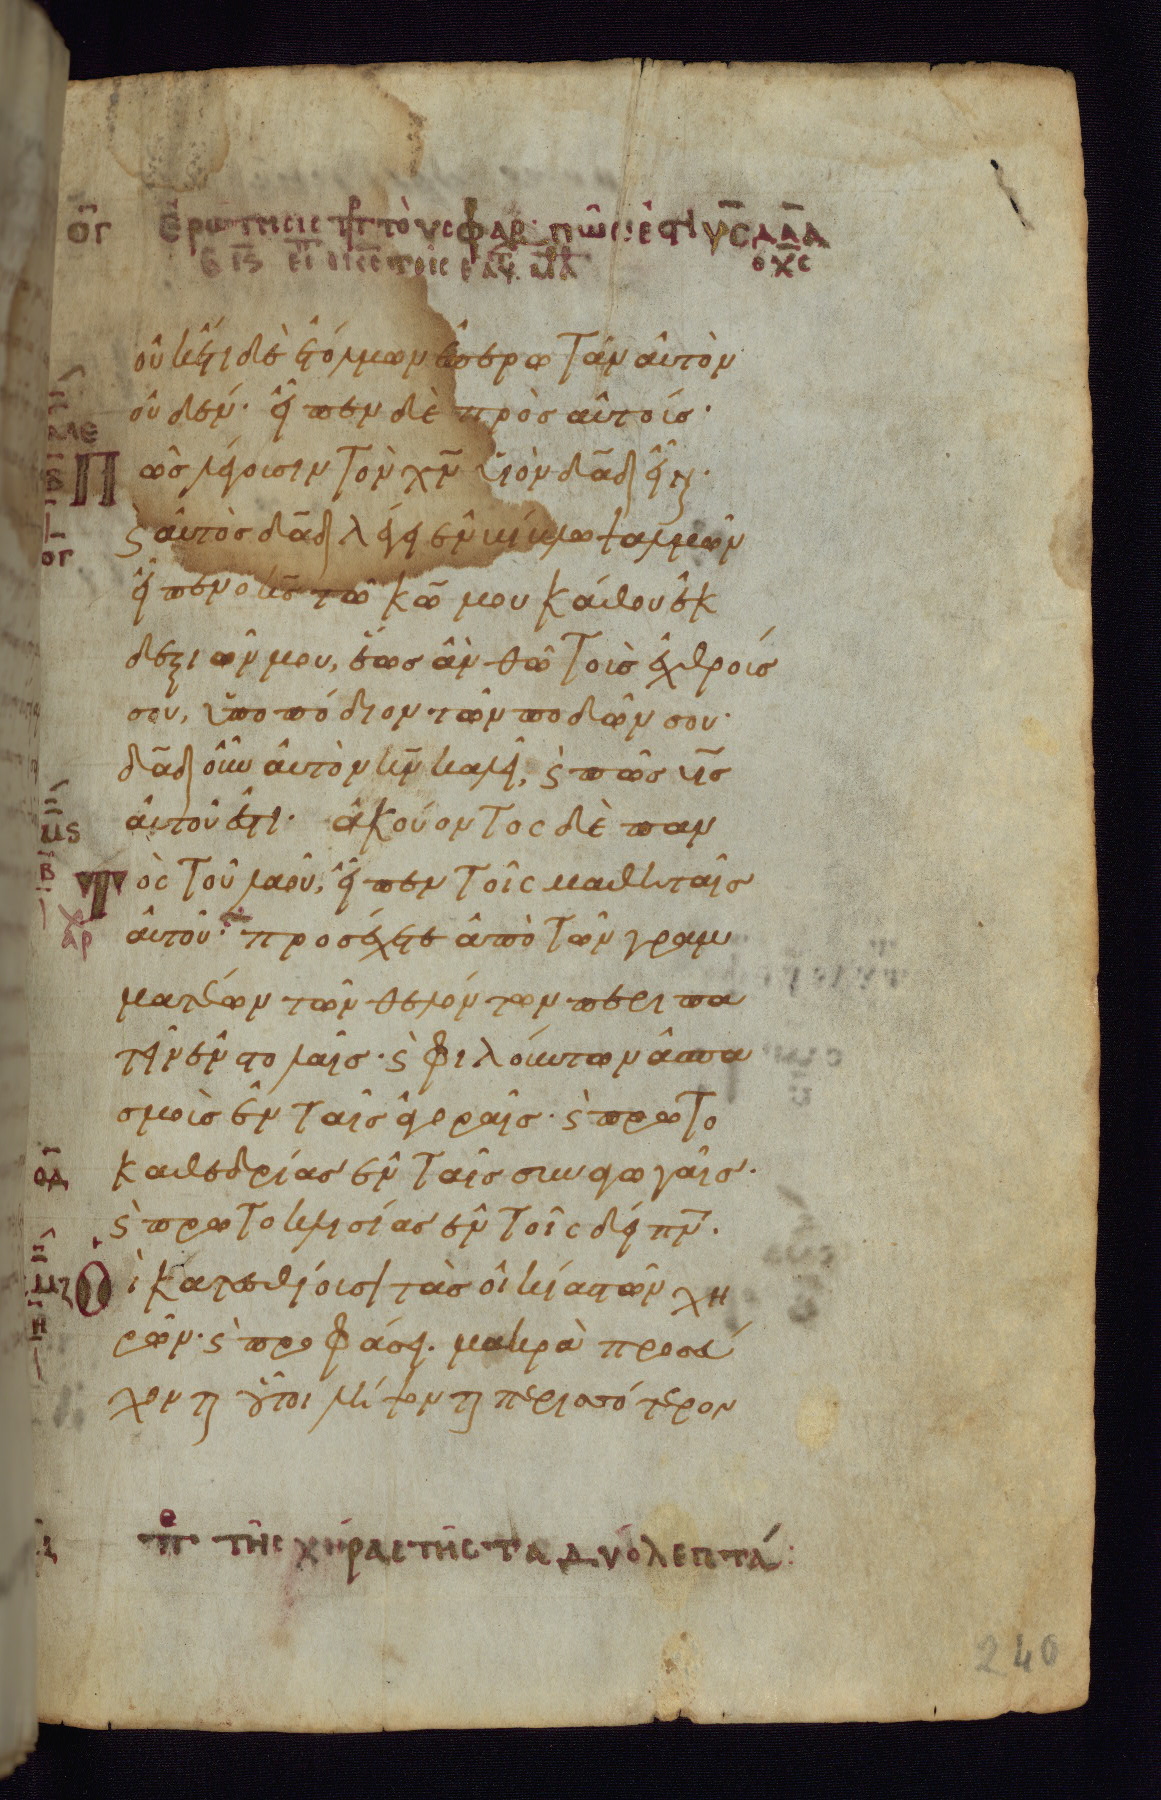 ογ Ερωτησις πρ τοὺς φαρ. πῶς ἐστὶ υς δαδ
ο χς
οὐκέτι δὲ ἐτόλμων ἐπερωτάν αὐτὸν
οὐδέν· εἶπεν δὲ πρὸς αὐτούς·
Πῶς λέγουσιν τὸν χν υἱὸν δαδ εἶναι·
ϛ αὐτὸς δαδ λέγει ἐν βίβλω ψαλμῶν
εἶπεν ο κς τῶ κω μου κάθου ἐκ
δεξιῶν μου, ἕως ἂν θῶ τοὺς ἐχθρούς
σου, ὑποπόδιον τῶν ποδῶν σου·
δαδ οὖν αὐτὸν κν καλεῖ, ϛ πῶς υς
μϛ αὐτοῦ ἐστι· ἀκούοντος δὲ παν
τὸς τοῦ λαοῦ, εἶπεν τοῖς μαθηταῖς
αὐτοῦ· προσέχετε ἀπὸ τῶν γραμ
ματέων τῶν θελόντων περιπα
τεῖν ἐν στολαῖς· ϛ φιλούντων ἀσπα
σμοὺς ἐν ταῖς ἀγοραῖς· ϛ πρωτο
οδ καθεδρίας ἐν ταῖς συναγωγαῖς·
ϛ πρωτοκλισίας ἐν τοῖς δείπν·
μζ Οἱ κατεσθίουσι τὰς οἰκίας τῶν χη
ρῶν· ϛ προφάσει μακρὰ προσεύ
χονται οὗτοι λήψονται περισσότερον
πε τῆς χήρας τῆς τὰ δύο λεπτά:
240